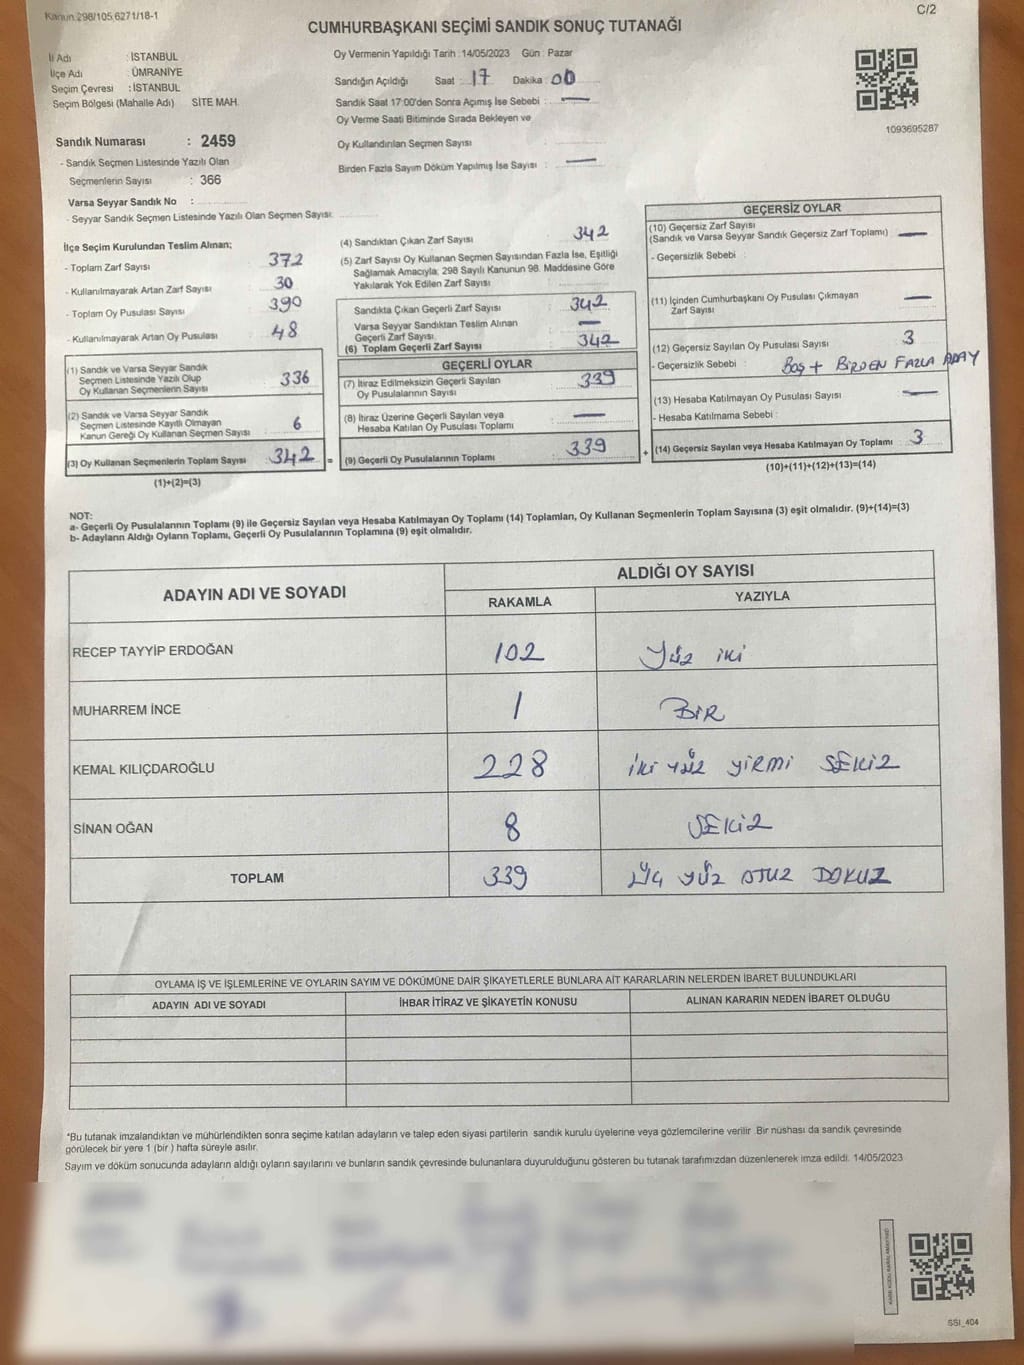 Kanun:298/105,6271/18-1
C/2
CUMHURBAŞKANI SEÇİMİ SANDIK SONUÇ TUTANAĞI
İl Adı : İSTANBUL
İlçe Adı : ÜMRANİYE
Seçim Çevresi : İSTANBUL
Seçim Bölgesi (Mahalle Adı) SİTE MAH.
Sandık Numarası : 2459
- Sandık Seçmen Listesinde Yazılı Olan
Seçmenlerin Sayısı : 366
Varsa Seyyar Sandık No :
- Seyyar Sandık Seçmen Listesinde Yazılı Olan Seçmen Sayısı:
Oy Vermenin Yapıldığı Tarih : 14/05/2023 Gün : Pazar
Sandığın Açıldığı Saat : 17 Dakika : 00
Sandık Saat 17:00'den Sonra Açımış İse Sebebi : —
Oy Verme Saati Bitiminde Sırada Bekleyen ve
Oy Kullandırılan Seçmen Sayısı :
Birden Fazla Sayım Döküm Yapılmış İse Sayısı : —
1093695287
İlçe Seçim Kurulundan Teslim Alınan;
- Toplam Zarf Sayısı : 372
- Kullanılmayarak Artan Zarf Sayısı : 30
- Toplam Oy Pusulası Sayısı : 390
- Kullanılmayarak Artan Oy Pusulası : 48
(1) Sandık ve Varsa Seyyar Sandık
Seçmen Listesinde Yazılı Olup
Oy Kullanan Seçmenlerin Sayısı : 336
(2) Sandık ve Varsa Seyyar Sandık
Seçmen Listesinde Kayıtlı Olmayan
Kanun Gereği Oy Kullanan Seçmen Sayısı : 6
(3) Oy Kullanan Seçmenlerin Toplam Sayısı : 342 =
(1)+(2)=(3)
(4) Sandıktan Çıkan Zarf Sayısı : 342
(5) Zarf Sayısı Oy Kullanan Seçmen Sayısından Fazla İse, Eşitliği
Sağlamak Amacıyla; 298 Sayılı Kanunun 98. Maddesine Göre
Yakılarak Yok Edilen Zarf Sayısı :
Sandıkta Çıkan Geçerli Zarf Sayısı : 342
Varsa Seyyar Sandıktan Teslim Alınan
Geçerli Zarf Sayısı : —
(6) Toplam Geçerli Zarf Sayısı : 342
GEÇERLİ OYLAR
(7) İtiraz Edilmeksizin Geçerli Sayılan
Oy Pusulalarının Sayısı : 339
(8) İtiraz Üzerine Geçerli Sayılan veya
Hesaba Katılan Oy Pusulası Toplamı : —
(9) Geçerli Oy Pusulalarının Toplamı : 339 +
GEÇERSİZ OYLAR
(10) Geçersiz Zarf Sayısı
(Sandık ve Varsa Seyyar Sandık Geçersiz Zarf Toplamı) : —
- Geçersizlik Sebebi :
(11) İçinden Cumhurbaşkanı Oy Pusulası Çıkmayan
Zarf Sayısı : —
(12) Geçersiz Sayılan Oy Pusulası Sayısı : 3
- Geçersizlik Sebebi : BOŞ + BİRDEN FAZLA ADAY
(13) Hesaba Katılmayan Oy Pusulası Sayısı : —
- Hesaba Katılmama Sebebi :
(14) Geçersiz Sayılan veya Hesaba Katılmayan Oy Toplamı : 3
(10)+(11)+(12)+(13)=(14)
NOT:
a- Geçerli Oy Pusulalarının Toplamı (9) ile Geçersiz Sayılan veya Hesaba Katılmayan Oy Toplamı (14) Toplamları, Oy Kullanan Seçmenlerin Toplam Sayısına (3) eşit olmalıdır. (9)+(14)=(3)
b- Adayların Aldığı Oyların Toplamı, Geçerli Oy Pusulalarının Toplamına (9) eşit olmalıdır.
ADAYIN ADI VE SOYADI
ALDIĞI OY SAYISI
RAKAMLA YAZIYLA
RECEP TAYYİP ERDOĞAN 102 Yüz iki
MUHARREM İNCE 1 BİR
KEMAL KILIÇDAROĞLU 228 iki yüz yirmi SEKİZ
SİNAN OĞAN 8 SEKİZ
TOPLAM 339 Üç yüz otuz DOKUZ
OYLAMA İŞ VE İŞLEMLERİNE VE OYLARIN SAYIM VE DÖKÜMÜNE DAİR ŞİKAYETLERLE BUNLARA AİT KARARLARIN NELERDEN İBARET BULUNDUKLARI
ADAYIN ADI VE SOYADI İHBAR İTİRAZ VE ŞİKAYETİN KONUSU ALINAN KARARIN NEDEN İBARET OLDUĞU
*Bu tutanak imzalandıktan ve mühürlendikten sonra seçime katılan adayların ve talep eden siyasi partilerin sandık kurulu üyelerine veya gözlemcilerine verilir .Bir nüshası da sandık çevresinde
görülecek bir yere 1 (bir ) hafta süreyle asılır.
Sayım ve döküm sonucunda adayların aldığı oyların sayılarını ve bunların sandık çevresinde bulunanlara duyurulduğunu gösteren bu tutanak tarafımızdan düzenlenerek imza edildi. 14/05/2023
SSI_404